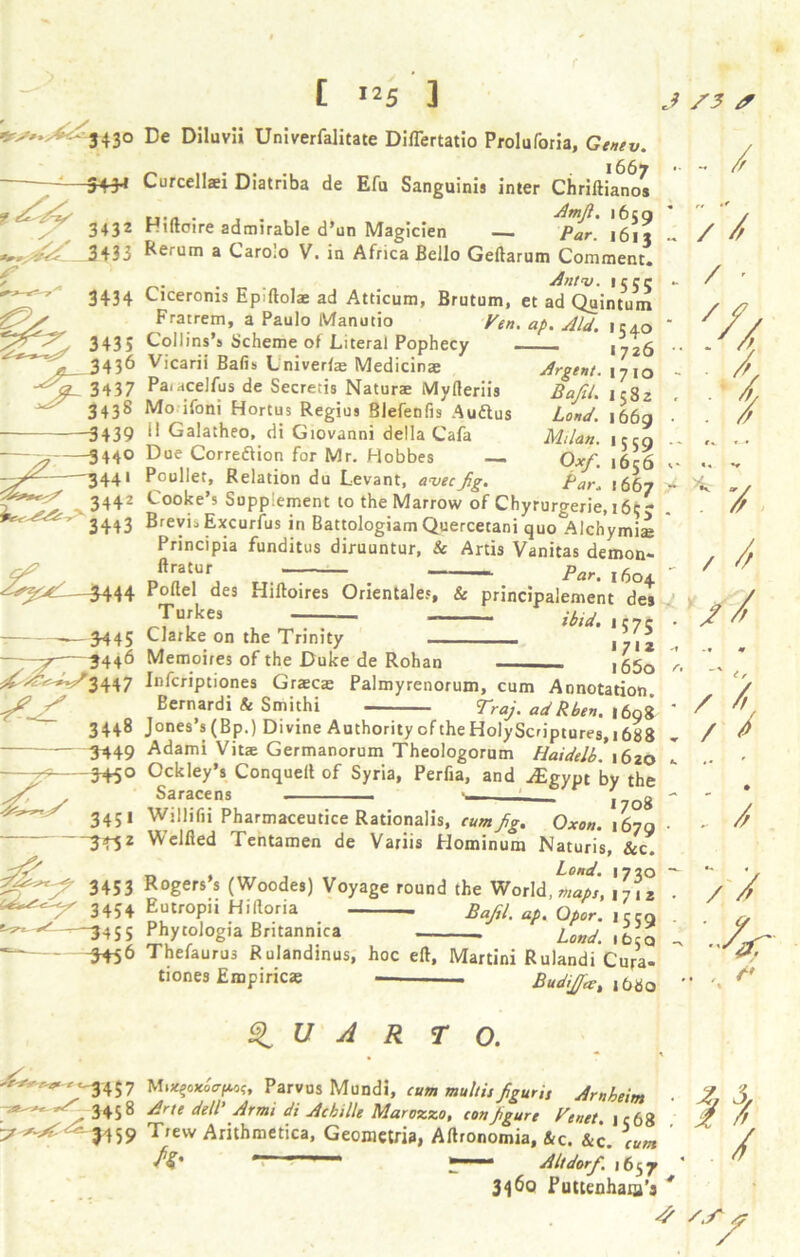 [ 125 ]
3430 De Diluvii Univerſalitate Diſſertatio Proluſoria, Genev.
1667
3431 Curcellæi Diatriba de Eſu Sanguinis inter Chriſtianos
Amſt. 1659
3432 Hiſtoire admirable d'un Magicien — Par. 1613
3433 Rerum a Carolo V. in Africa Bello Geſtarum Comment.
Antv. 1555
3434 Ciceronis Epiſtolæ ad Atticum, Brutum, et ad Quintum
Fratrem, a Paulo Manutio Ven. ap. Ald. 1540
3435 Collins's Scheme of Literal Pophecy —— 1726
3436 Vicarii Baſis Univerſæ Medicinæ Argent. 1710
3437 Paracelſus de Secretis Naturæ Myſteriis Baſil. 1582
3438 Moriſoni Hortus Regius Bleſenſis Auctus Lond. 1669
3439 Il Galatheo, di Giovanni della Caſa Milan. 1559
3440 Due Correction for Mr. Hobbes — Oxf. 1656
3441 Poullet, Relation du Levant, avec fig. Par. 1667
3442 Cooke's Supplement to the Marrow of Chyrurgerie, 165
3443 Brevis Excurſus in Battologiam Quercetani quo Alchymiæ
Principia funditus diruuntur, & Artis Vanitas demon-
ſtratur —— —— Par. 1604
3444 Poſtel des Hiſtoires Orientales, & principalement des
Turkes —— —— ibid. 1575
3445 Clarke on the Trinity —— 1712
3446 Memoires of the Duke de Rohan —— 1660
3447 Inſcriptiones Græcæ Palmyrenorum, cum Annotation.
Bernardi & Smithi —— Traj. ad Rhen. 1698
3448 Jones's (Bp.) Divine Authority of the Holy Scriptures, 1688
3449 Adami Vitæ Germanorum Theologorum Haidelb. 1620
3450 Ockley's Conqueſt of Syria, Perſia, and Ægypt by the
Saracens —— —— 1708
3451 Williſii Pharmaceutice Rationalis, cum fig. Oxon. 1679
3452 Welſted Tentamen de Variis Hominum Naturis, &c.
Lond. 1730
3453 Rogers's (Woodes) Voyage round the World, maps, 1712
3454 Eutropii Hiſtoria —— Baſil. ap. Opor. 1559
3455 Phytologia Britannica —— Lond. 1650
3456 Theſaurus Rulandinus, hoc eſt, Martini Rulandi Cura-
tiones Empiricæ —— Budiſſæ, 1680
QUARTO.
3457 Μικροκόσμος, Parvus Mundi, cum multis figuris Arnheim
3458 Arte dell' Armi di Achille Marozzo, con figure Venet. 1568
3459 Trew Arithmetica, Geometria, Aſtronomia, &c. &c. cum
fig. —— —— Altdorf. 1657
3460 Puttenham's